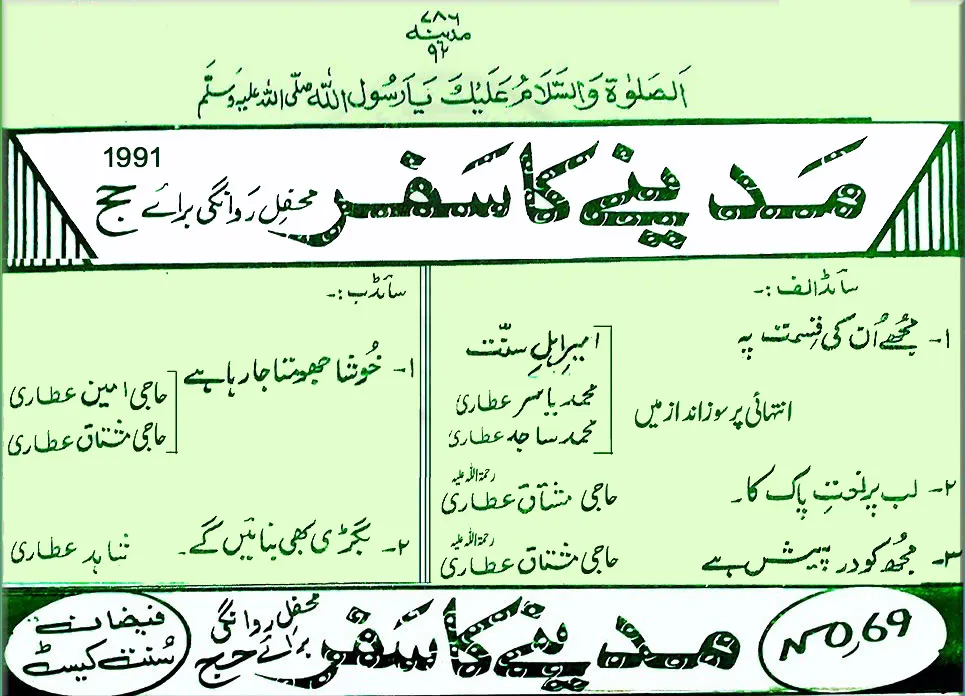 ۷۸۶
مدینہ
۹۲
اَلصَّلوٰۃُ وَالسَّلَامُ عَلَیْکَ یَارَسُولَ اللّٰہ صلّی اللہ علیہ وسلّم
مدینے کا سفر
1991
محفلِ روانگی برائے حج
سائڈ الف :-
۱- مجھے اُن کی قِسمت پہ
انتہائی پرسوز انداز میں
امیرِ اہلِ سنّت
محمد یاسر عطاری
محمد ساجد عطاری
۲- لب پر نعتِ پاک کا۔
حاجی مشتاق عطاری رحمۃ اللہ علیہ
۳- مجھ کو درپیش ہے
حاجی مشتاق عطاری رحمۃ اللہ علیہ
سائڈ ب :-
۱- خُوشا جھومتا جا رہا ہے
حاجی امین عطاری
حاجی مشتاق عطاری
۲- بگڑی بھی بنائیں گے۔
شاہد عطاری
No,69
مدینے کا سفر
محفلِ روانگی
برائے حج
فیضانِ
سُنّت کیسٹ